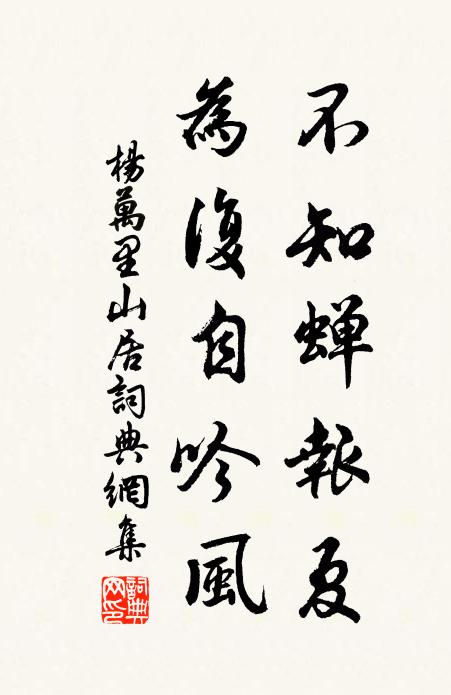 不知蝉報夏
為復自吟風
楊萬里山居詞典網集
詞典网印